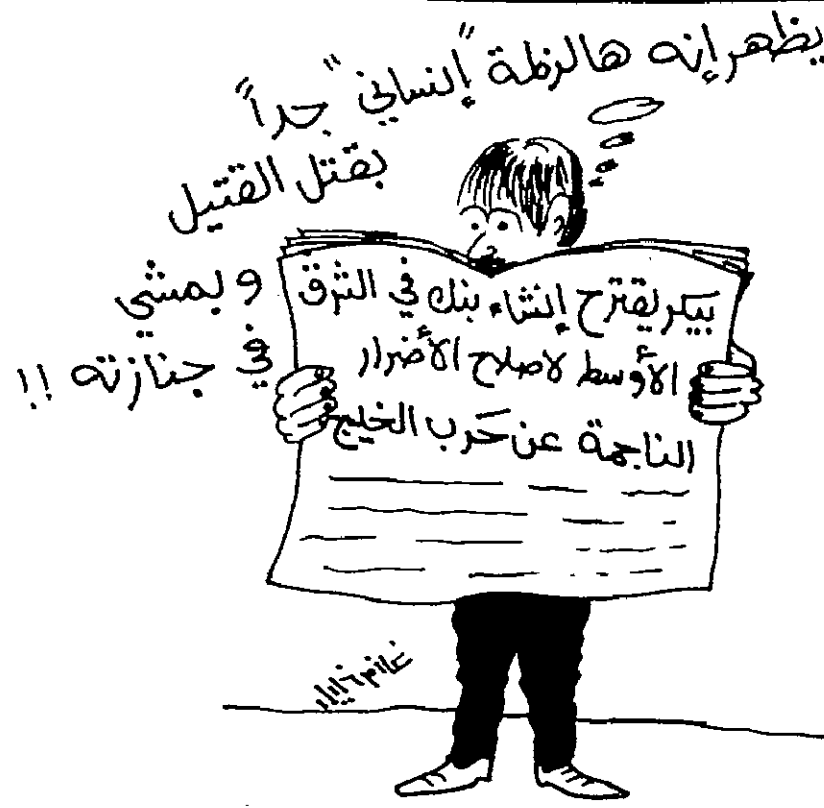 يظهر إنه هالزلمة "إنساني" جداً
بقتل القتيل
وبمشي
في جنازته !!
بيكر يقترح إنشاء بنك في الشرق
الأوسط لاصلاح الأضرار
الناجمة عن حَرب الخليج